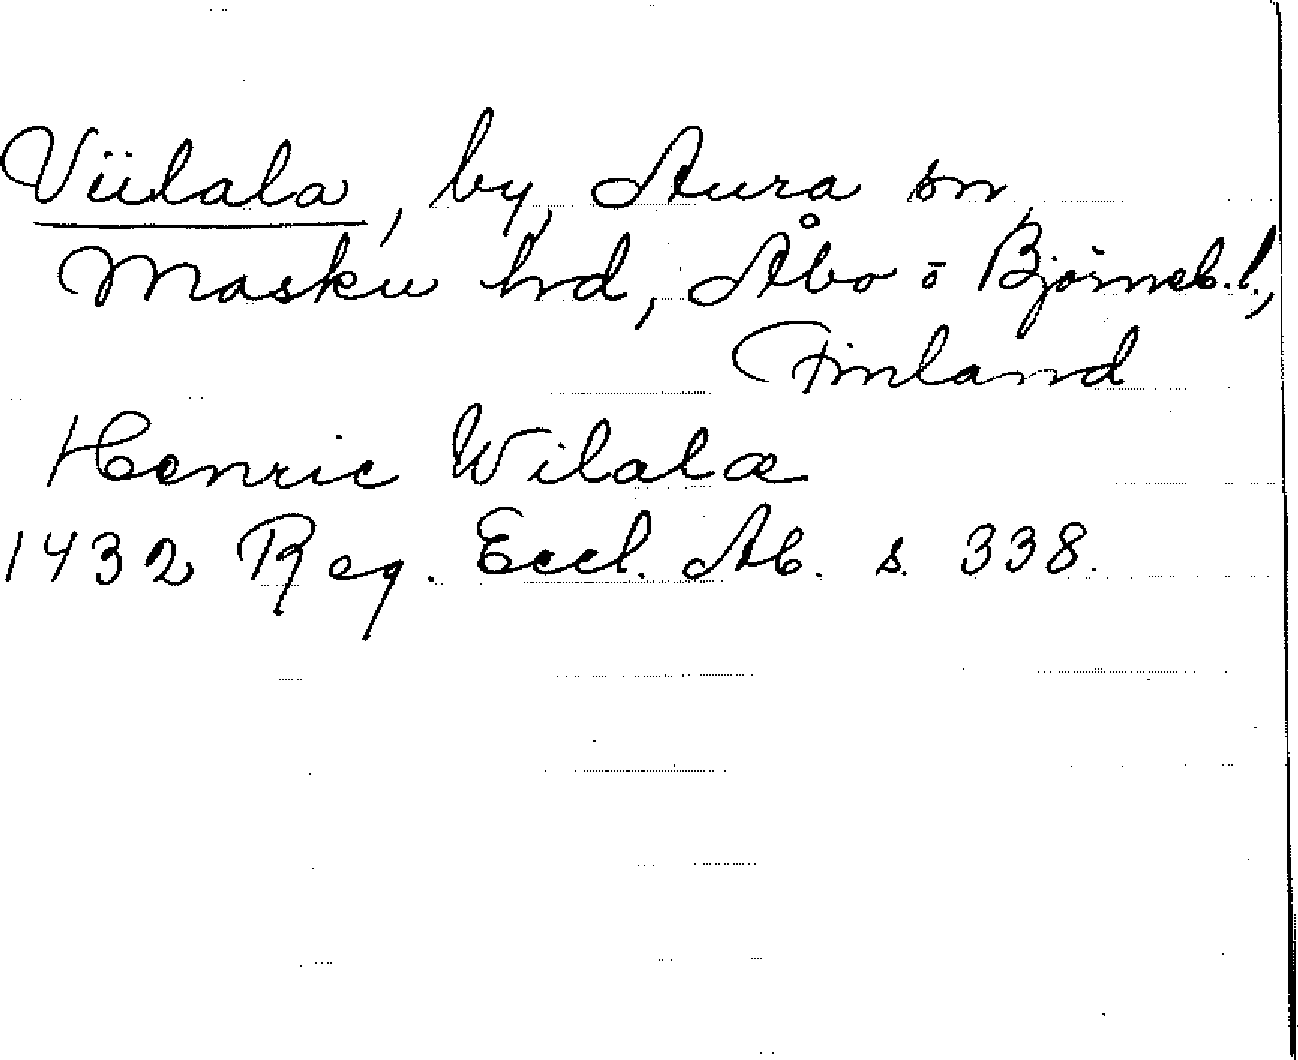 Viilala, by, Aura sn,
Masku hd, Åbo o Björneb.l.,
Finland
Henric Wilala
1432 Reg. Eccl. Ab. s. 338.